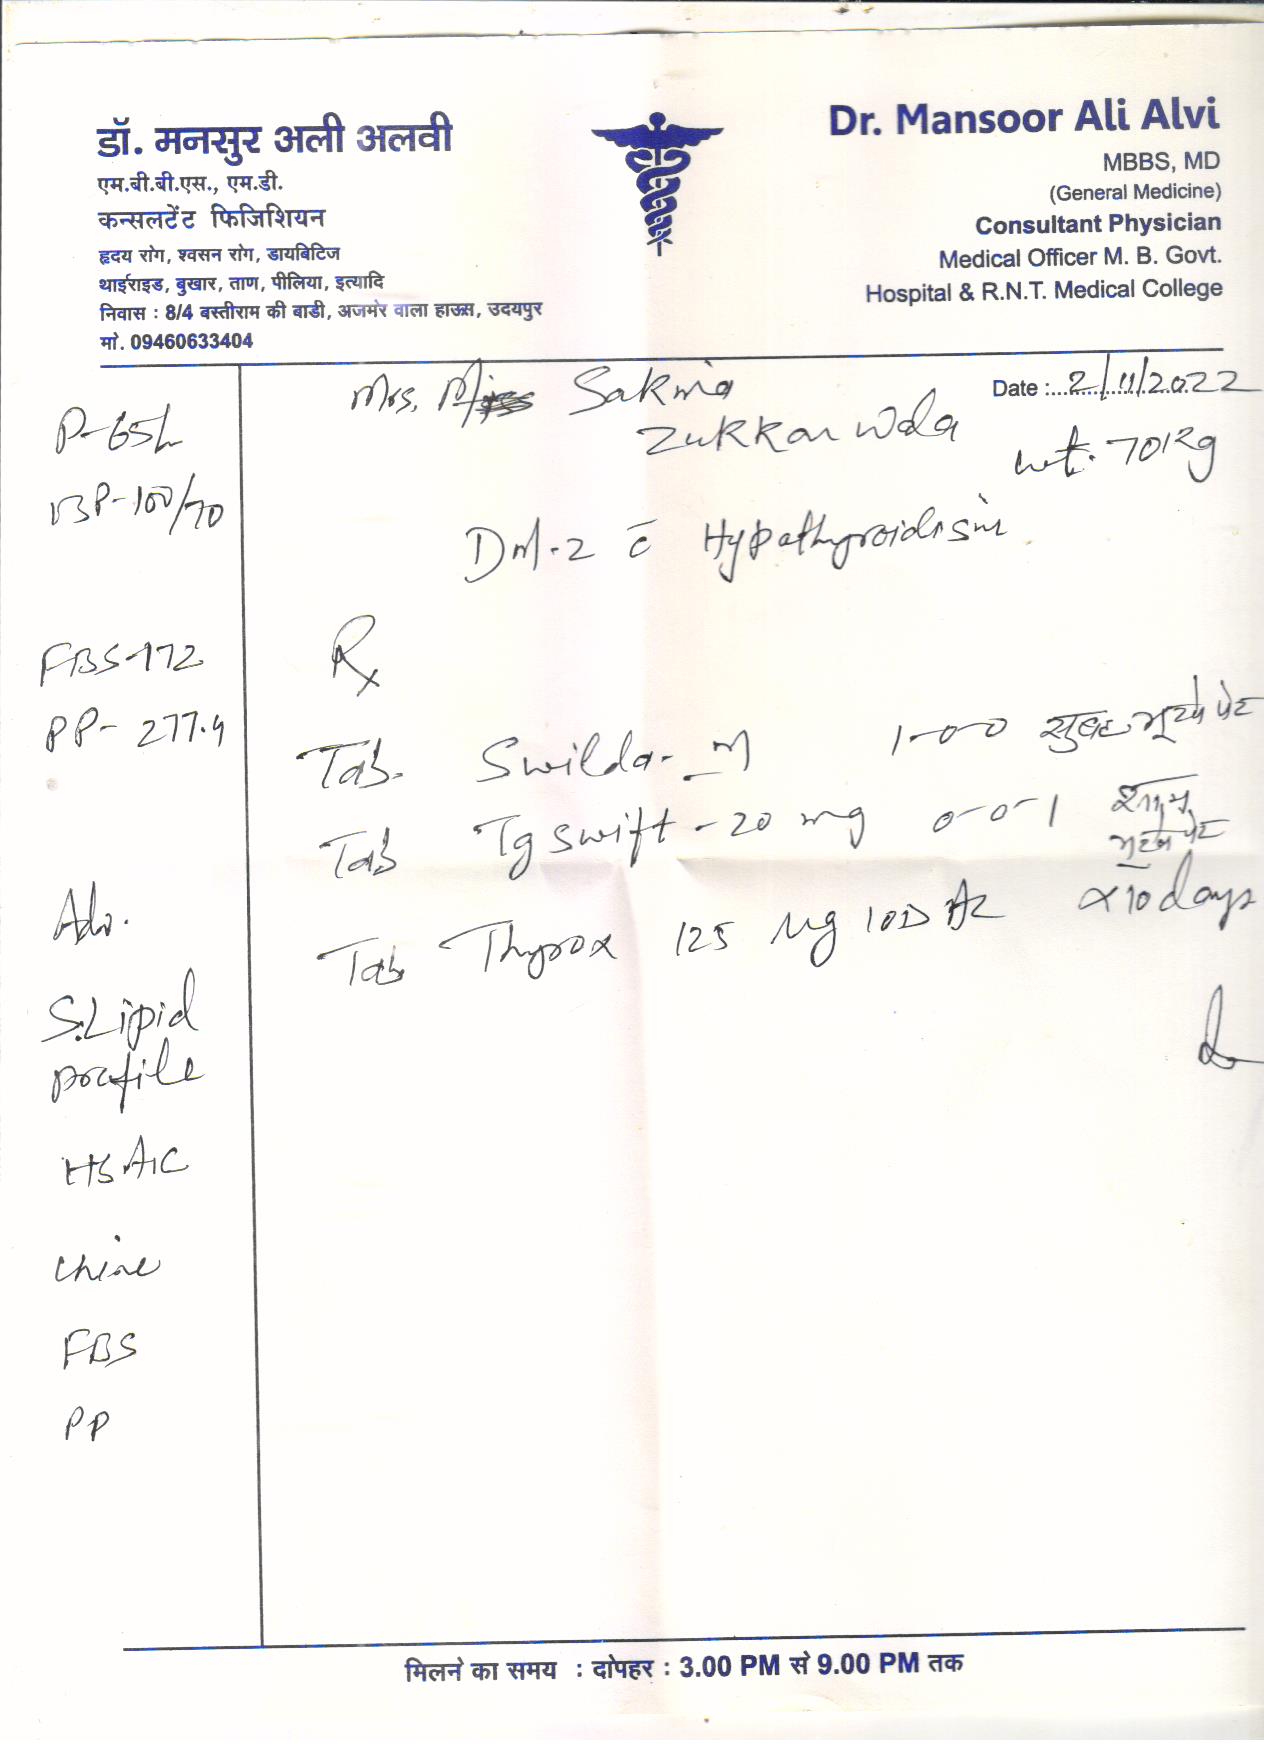 डॉ. मनसुर अली अलवी
एम.बी.बी.एस., एम.डी.
कन्सलटेंट फिजिशियन
हृदय रोग, श्वसन रोग, डायबिटिज
थाईराइड, बुखार, ताण, पीलिया, इत्यादि
निवास : 8/4 बस्तीराम की बाडी, अजमेर वाला हाऊस, उदयपुर
मो. 09460633404
Dr. Mansoor Ali Alvi
MBBS, MD
(General Medicine)
Consultant Physician
Medical Officer M. B. Govt.
Hospital & R.N.T. Medical College
Date : 2/11/2022
Mrs. Sakina
Zukkarwala
wt. 70kg
P-65/
BP-100/70
DM-2 c̄ Hypothyroidism
FBS-172
PP- 277.4
Rx
Tab. Swilda-M 1-0-0 सुबह भूखे पेट
Tab Tgswift-20 mg 0-0-1 शाम
भूखे पेट
Tab Thyrox 125 Mg 1OD AC x10days
Adv.
S.Lipid
profile
HbA1C
FBS
PP
मिलने का समय : दोपहर : 3.00 PM से 9.00 PM तक